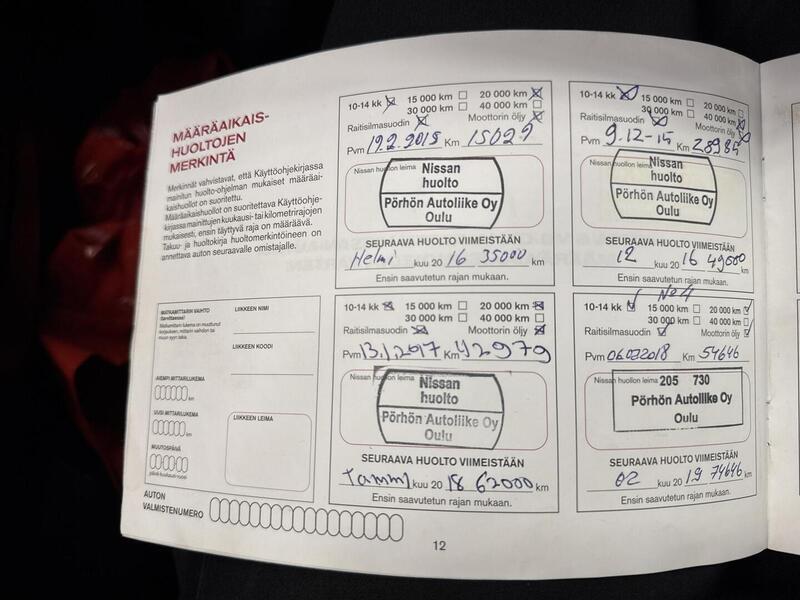 MÄÄRÄAIKAIS-
HUOLTOJEN
MERKINTÄ
Merkinnät vahvistavat, että Käyttöohjekirjassa
mainitun huolto-ohjelman mukaiset määräai-
kaishuollot on suoritettu.
Määräaikaishuollot on suoritettava Käyttöohje-
kirjassa mainittujen kuukausi- tai kilometrirajojen
mukaisesti, ensin täyttyvä raja on määräävä.
Takuu- ja huoltokirja huoltomerkintöineen on
annettava auton seuraavalle omistajalle.
10-14 kk 15 000 km 20 000 km
30 000 km 40 000 km
Raitisilmasuodin Moottorin öljy
Pvm 19.2.2015 Km 15029
Nissan huollon leima
Nissan
huolto
Pörhön Autoliike Oy
Oulu
SEURAAVA HUOLTO VIIMEISTÄÄN
Helmi kuu 20 16 35000 km
Ensin saavutetun rajan mukaan.
10-14 kk 15 000 km 20 000 km
30 000 km 40 000 km
Raitisilmasuodin Moottorin öljy
Pvm 9.12-15 Km 28985
Nissan huollon leima
Nissan
huolto
Pörhön Autoliike Oy
Oulu
SEURAAVA HUOLTO VIIMEISTÄÄN
12 kuu 20 16 49000 km
Ensin saavutetun rajan mukaan.
MATKAMITTARIN VAIHTO
(tarvittaessa)
Matkamittarin lukema on muuttunut
korjauksen, mittarin vaihdon tai
muun syyn takia.
AIEMPI MITTARILUKEMA
km
UUSI MITTARILUKEMA
km
MUUTOSPÄIVÄ
LIIKKEEN NIMI
LIIKKEEN KOODI
LIIKKEEN LEIMA
AUTON
VALMISTENUMERO
10-14 kk 15 000 km 20 000 km
30 000 km 40 000 km
Raitisilmasuodin Moottorin öljy
Pvm 13.1.2017 Km 42979
Nissan huollon leima
Nissan
huolto
Pörhön Autoliike Oy
Oulu
SEURAAVA HUOLTO VIIMEISTÄÄN
Tammi kuu 20 18 62000 km
Ensin saavutetun rajan mukaan.
No 4
10-14 kk 15 000 km 20 000 km
30 000 km 40 000 km
Raitisilmasuodin Moottorin öljy
Pvm 06.02.2018 Km 54646
Nissan huollon leima 205 730
Pörhön Autoliike Oy
Oulu
SEURAAVA HUOLTO VIIMEISTÄÄN
02 kuu 20 19 74646 km
Ensin saavutetun rajan mukaan.
12